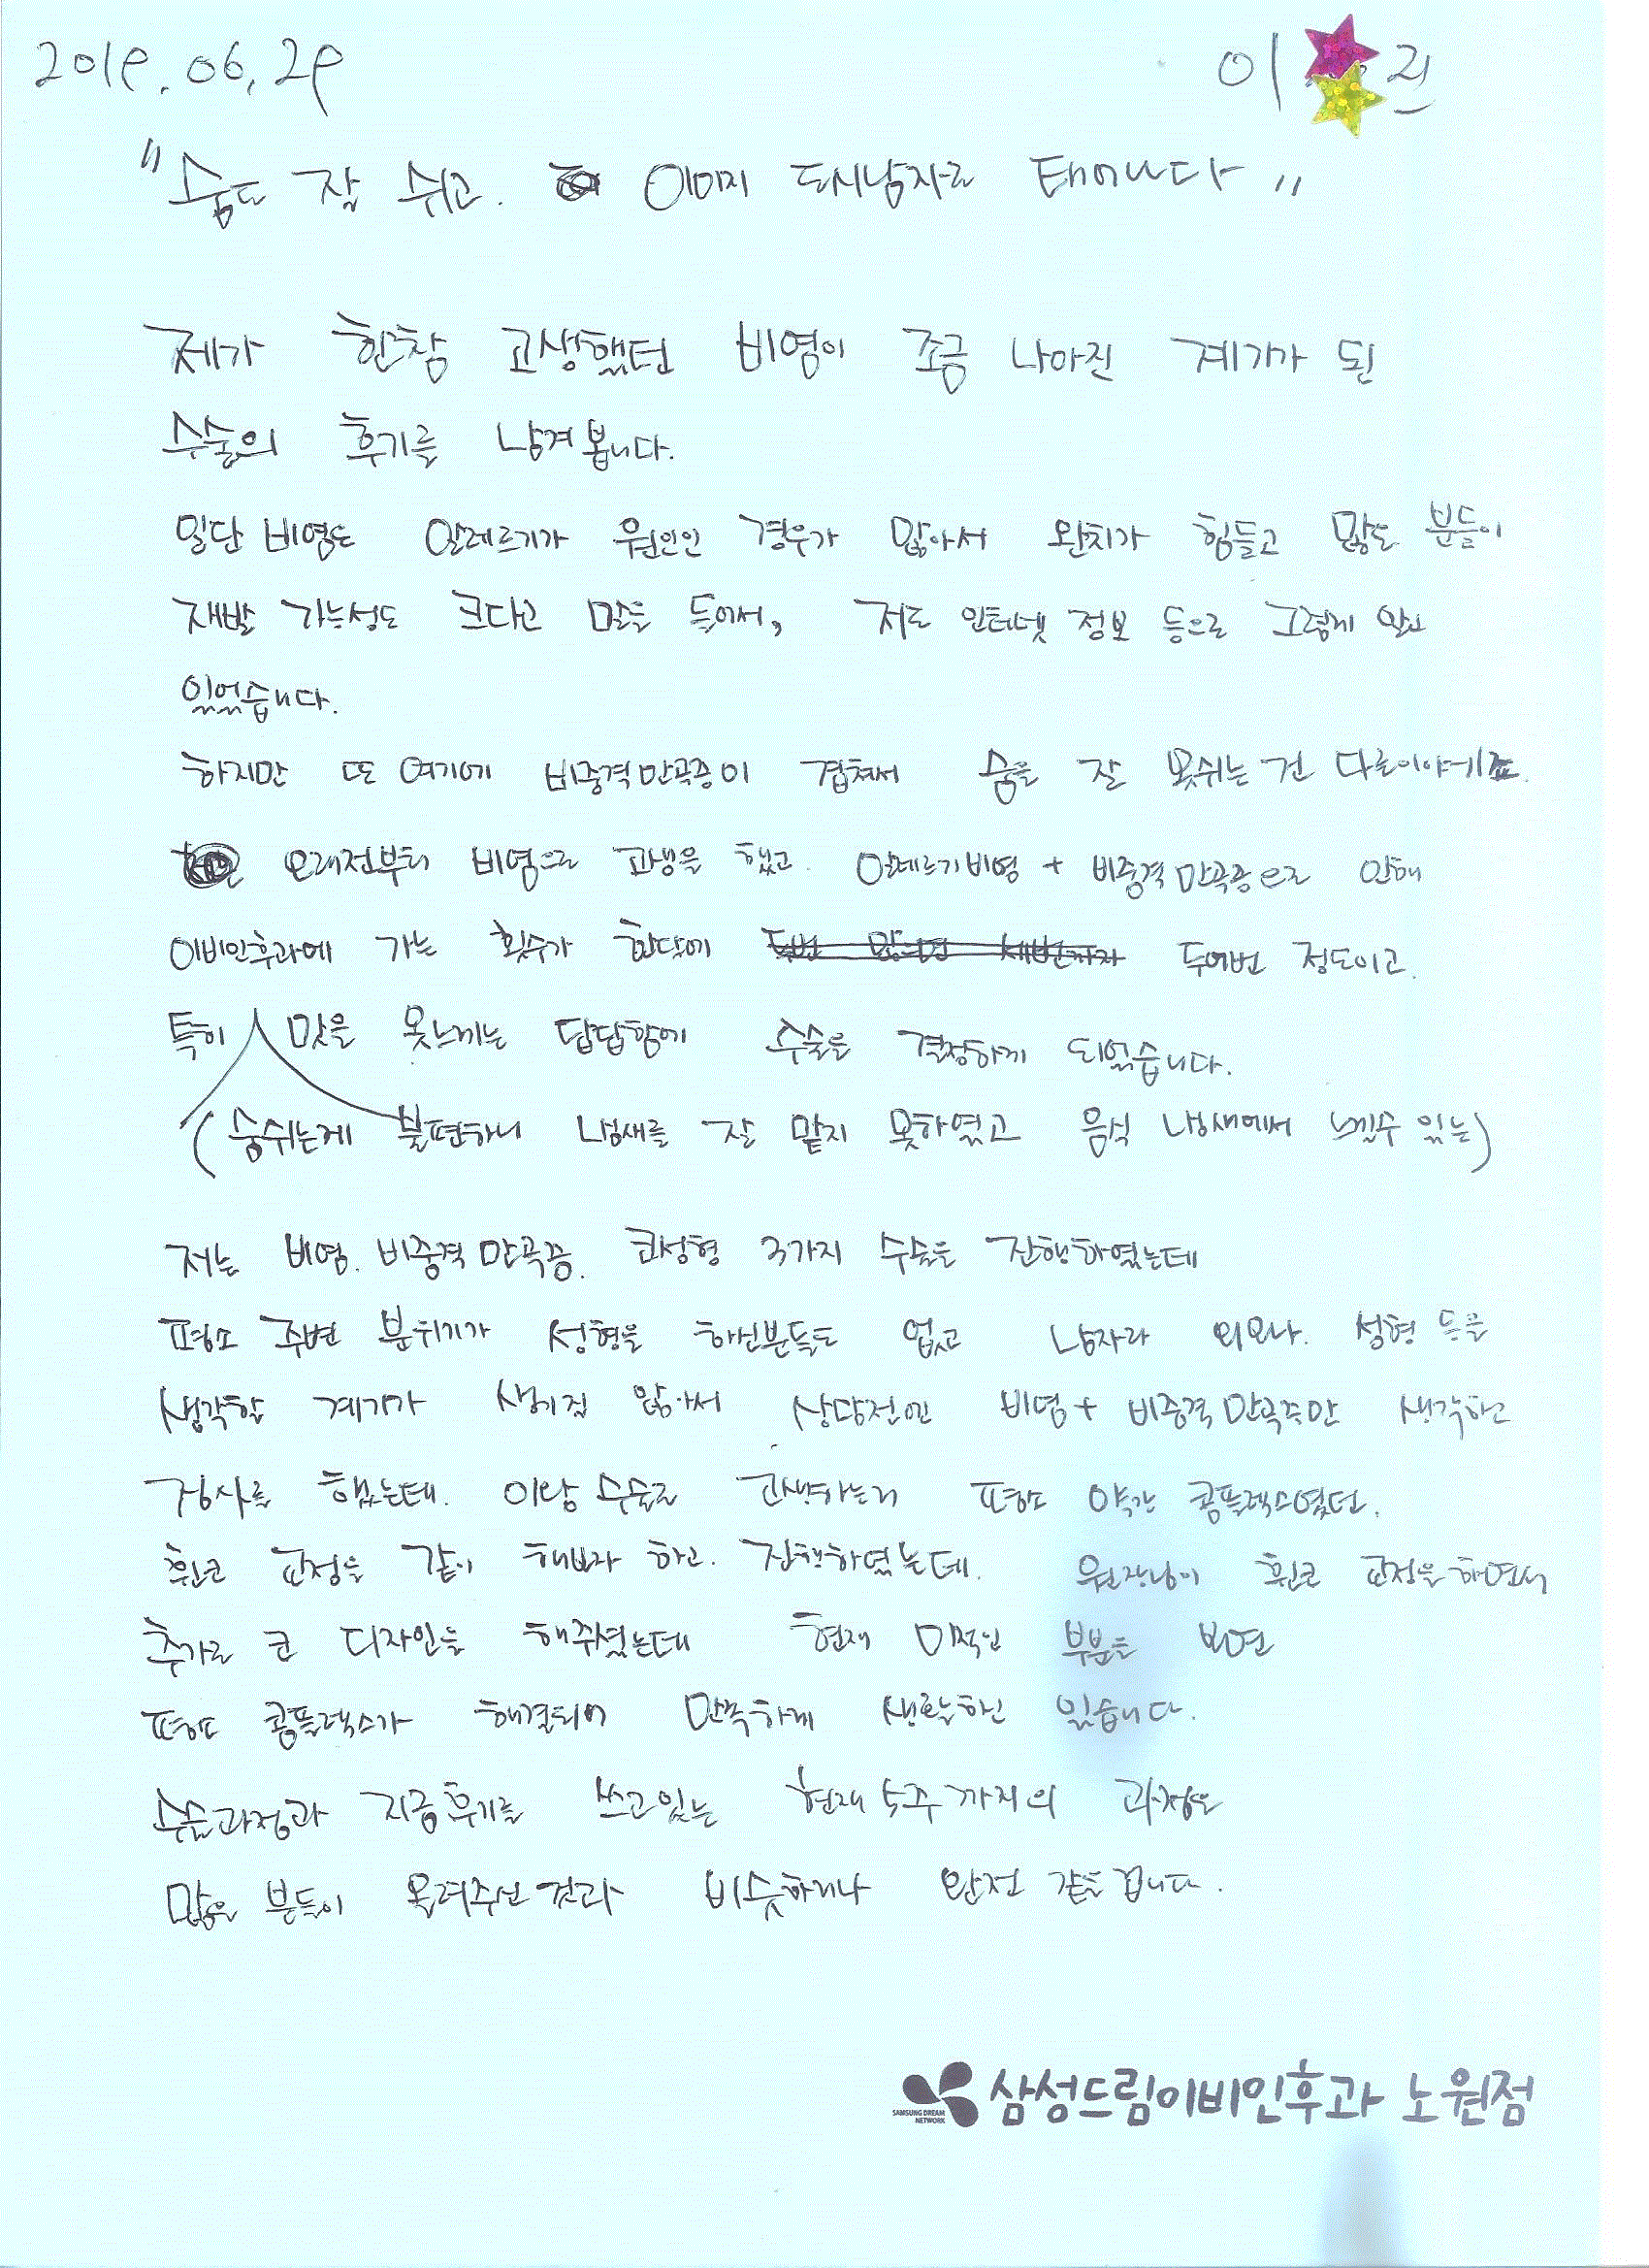 2019. 06. 29
이 진
"숨도 잘 쉬고. 이미지 도시남자로 태어나다"
제가 한참 고생했던 비염이 조금 나아진 계기가 된
수술의 후기를 남겨봅니다.
일단 비염도 알레르기가 원인인 경우가 많아서 완치가 힘들고 많은 분들이
재발 가능성도 크다고 말을 들어서, 저도 인터넷 정보 등으로 그렇게 알고
있었습니다.
하지만 또 여기에 비중격만곡증이 겹쳐서 숨을 잘 못쉬는건 다른이야기죠.
오래전부터 비염으로 고생을 했고. 알레르기비염 + 비중격만곡증으로 인해
이비인후과에 가는 횟수가 한달에 두번 많으면 세번까지 두어번 정도이고.
특히 맛을 못느끼는 답답함에 수술을 결정하게 되었습니다.
(숨쉬는게 불편하니 냄새를 잘 맡지 못하였고 음식 냄새에서 느낄수 있는)
저는 비염. 비중격만곡증. 코성형 3가지 수술을 진행하였는데
평소 주변 분위기가 성형을 하신분들도 없고 남자라 외모나. 성형 등을
생각할 계기가 생기질 않아서 상담전엔 비염+ 비중격만곡증만 생각하고
검사를 했는데. 이왕 수술로 고생하는거 평소 약간 콤플렉스였던.
휜코 교정을 같이 해보자 하고. 진행하였는데. 원장님이 휜코 교정을 하면서
추가로 코 디자인을 해주셨는데 현재 미적인 부분을 보면
평소 콤플렉스가 해결되어 만족하게 생활하고 있습니다.
수술과정과 지금후기를 쓰고있는 현재 5주까지의 과정은
많은 분들이 올려주신것과 비슷하거나 완전 같을겁니다.
SAMSUNG DREAM
NETWORK
삼성드림이비인후과 노원점